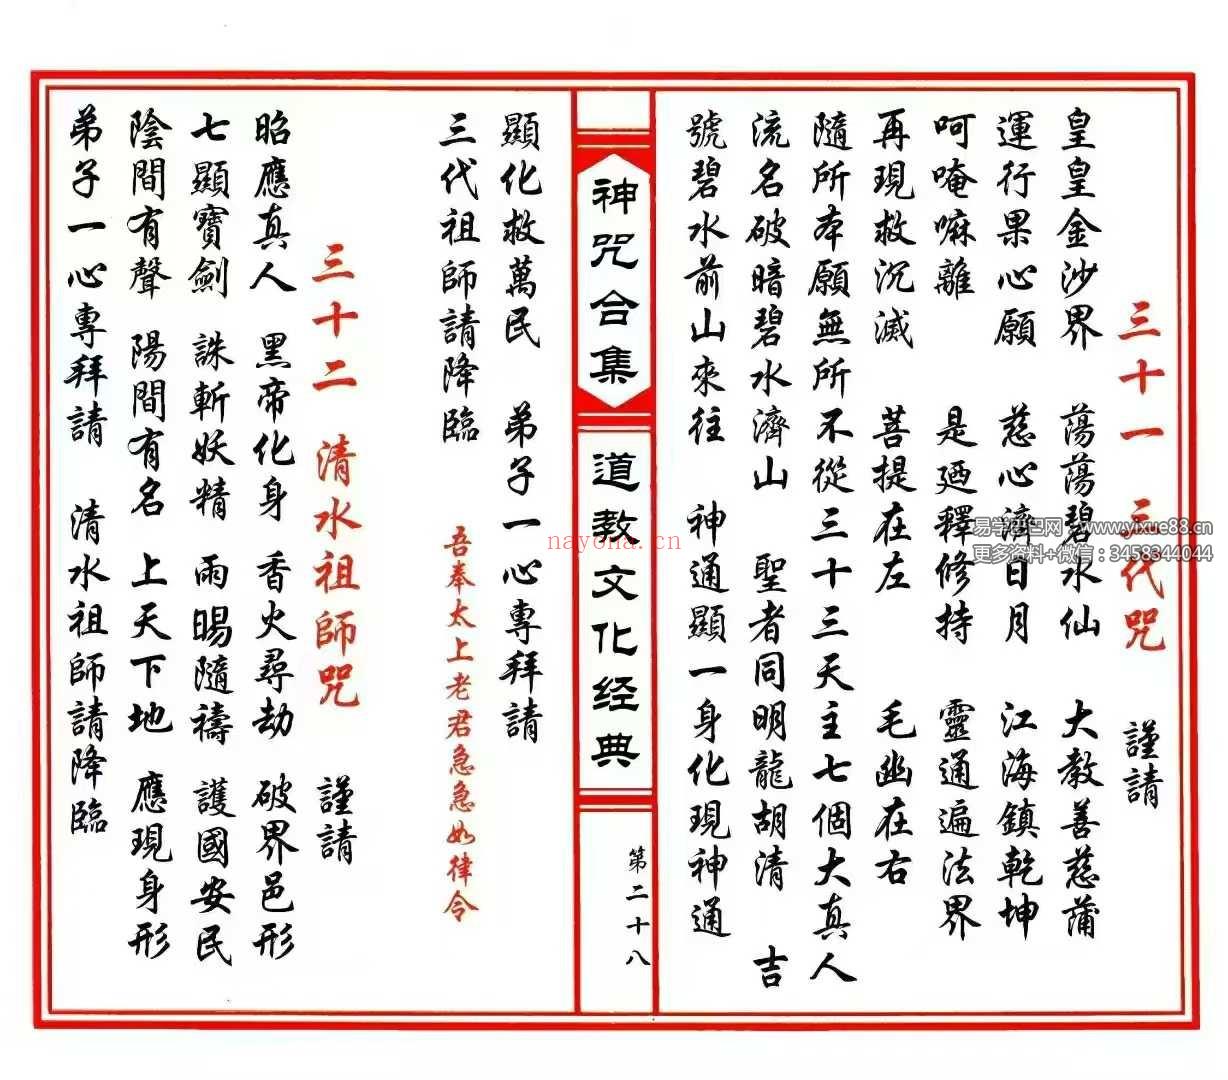 三十一 三代咒 謹請
皇皇金沙界 蕩蕩碧水仙 大教善慈蒲
運行果心願 慈心濟日月 江海鎮乾坤
呵唵嘛離 是廼釋修持 靈通遍法界
再現救沉滅 菩提在左 毛幽在右
隨所本願無所不從三十三天主七個大真人
流名破暗碧水濟山 聖者同明龍胡清 吉
號碧水前山來往 神通顯一身化現神通
神咒合集
道教文化经典
第二十八
顯化救萬民 弟子一心專拜請
三代祖師請降臨 吾奉太上老君急急如律令
三十二 清水祖師咒 謹請
昭應真人 黑帝化身 香火尋劫 破界邑形
七顯寶劍 誅斬妖精 雨賜隨禱 護國安民
陰間有聲 陽間有名 上天下地 應現身形
弟子一心專拜請 清水祖師請降臨
nayona.cn
易学吧网 www.yixue88.cn
更多资料+微信：3458344044